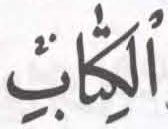 ٱلْكِتَابِ